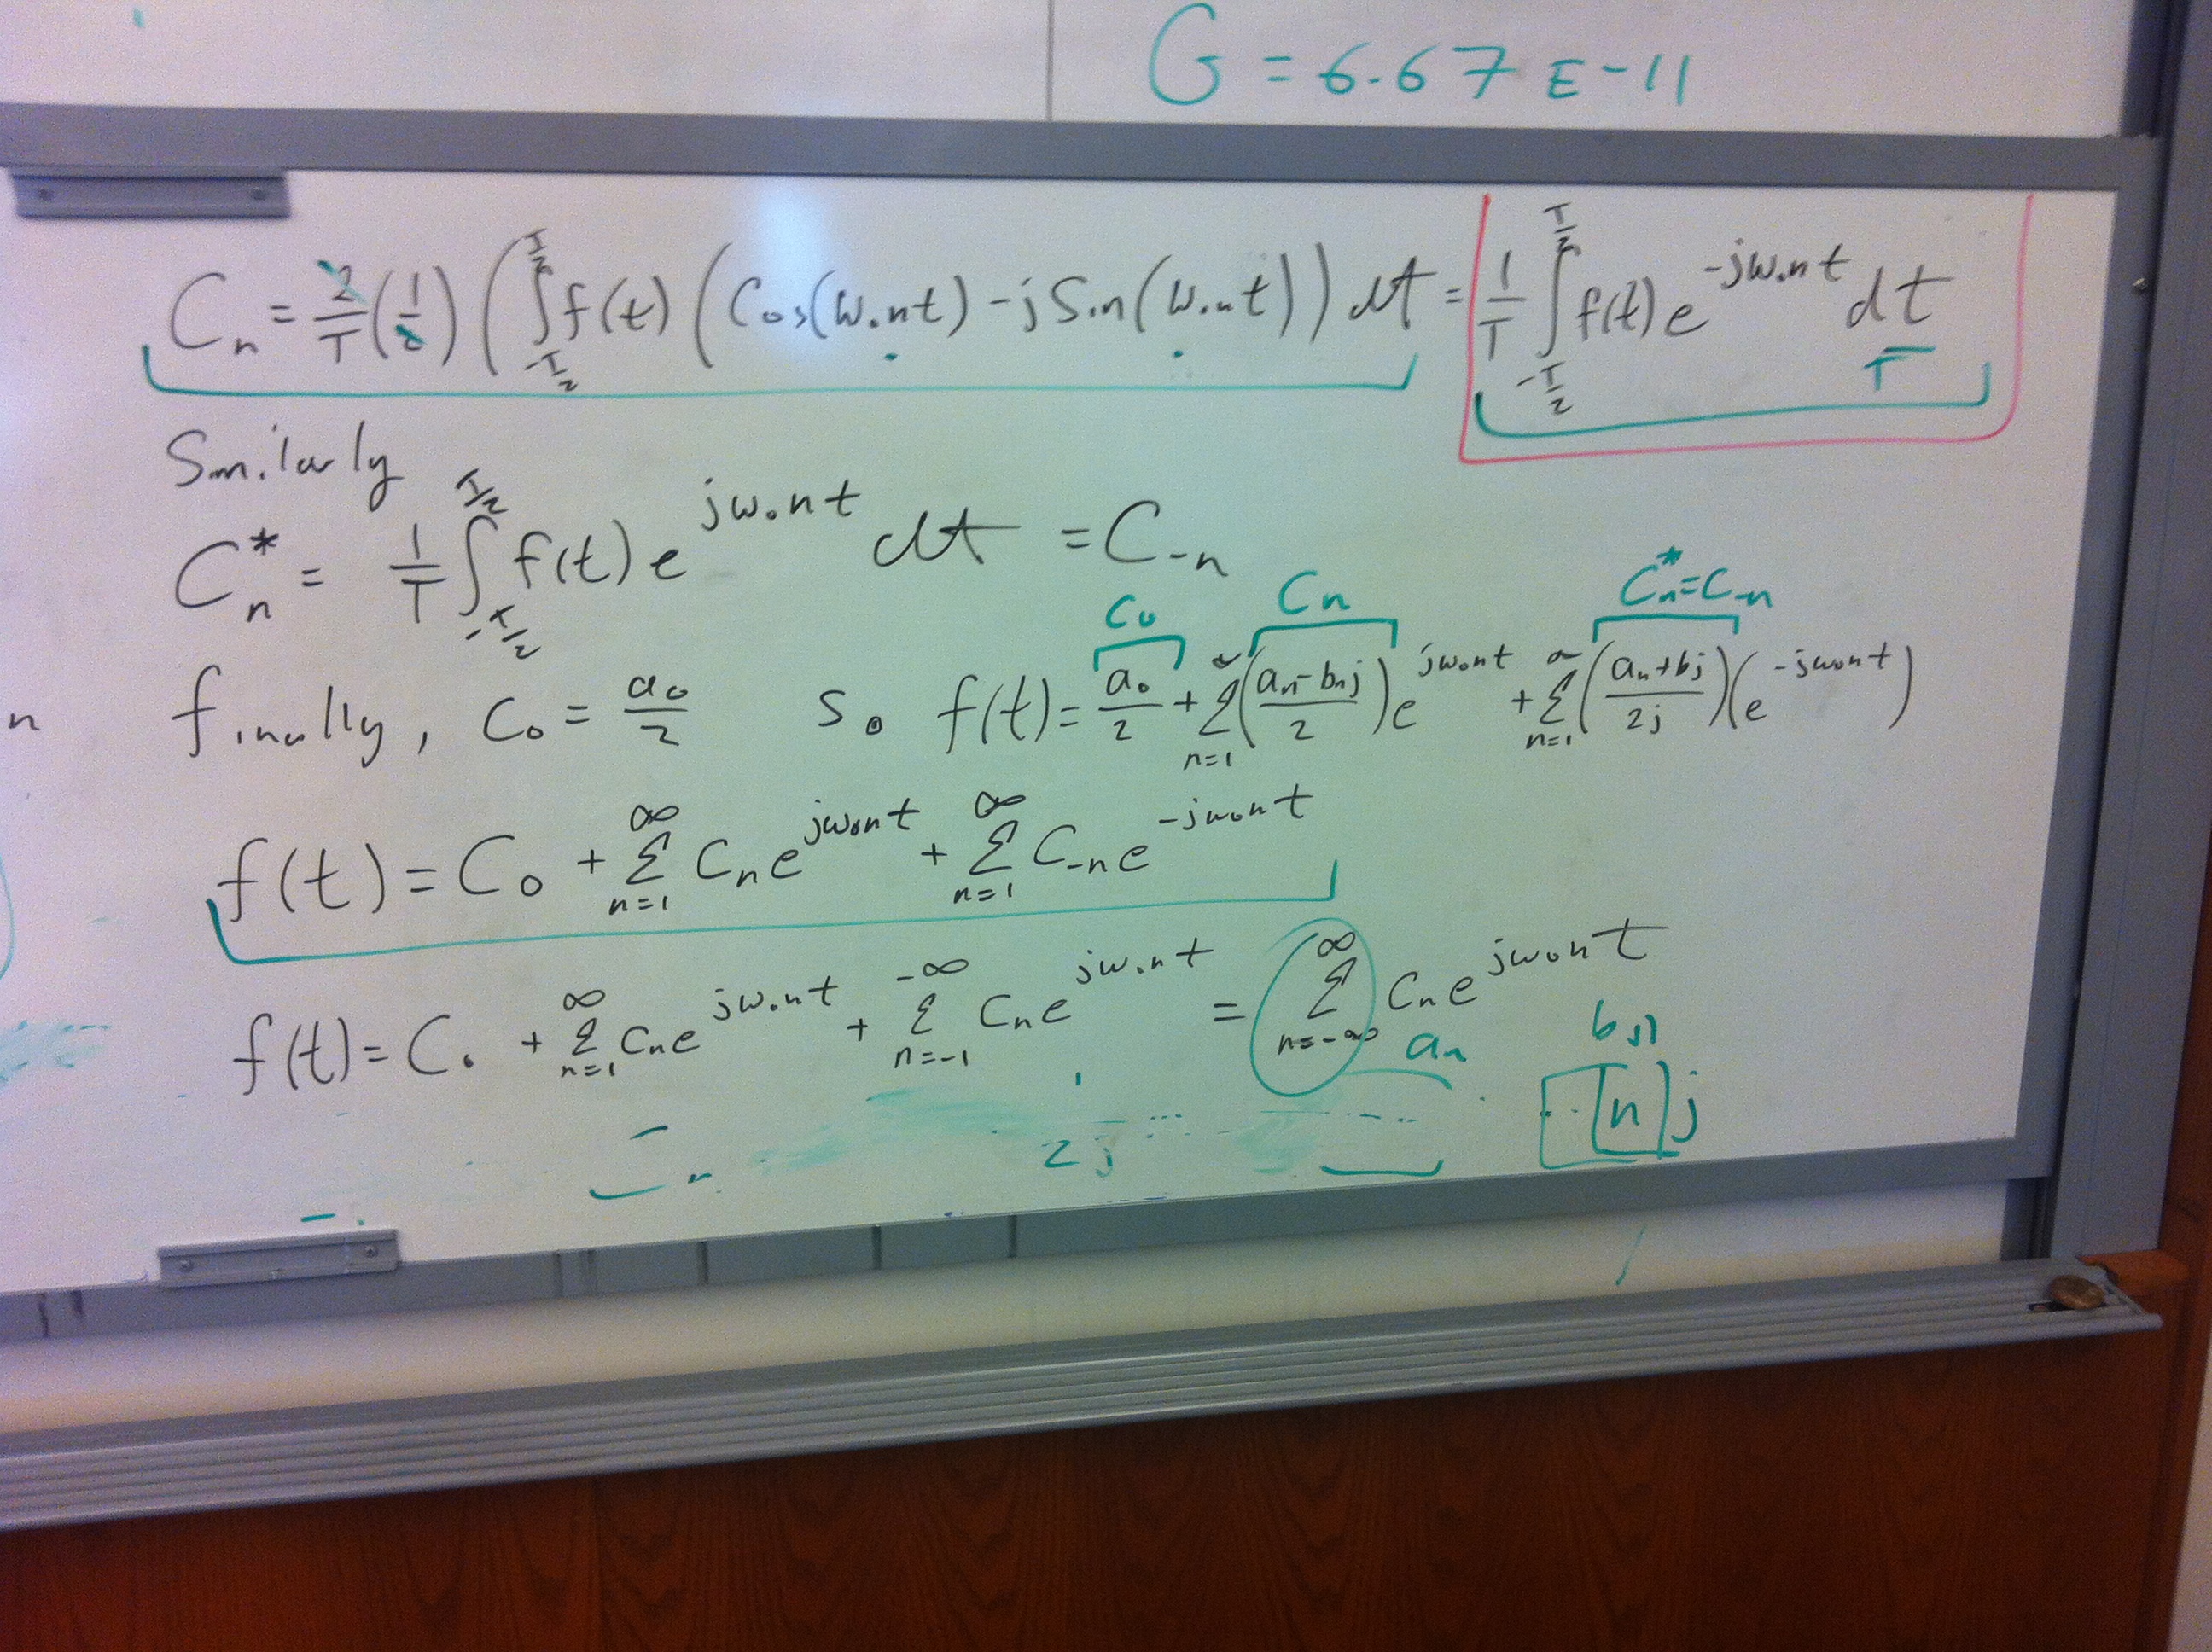 G = 6.67 E-11
Cn = 2/T (1/2) ( ∫_{-T/2}^{T/2} f(t) ( Cos(w₀nt) - j Sin(w₀nt) ) dt = 1/T ∫_{-T/2}^{T/2} f(t) e^{-jw₀nt} dt
T
Similarly
Cn* = 1/T ∫_{-T/2}^{T/2} f(t) e^{jw₀nt} dt = C-n
C₀ Cn Cn* = C-n
n finally, C₀ = a₀/2 So f(t) = a₀/2 + Σ_{n=1}^{∞} ( (an - bnj)/2 ) e^{jw₀nt} + Σ_{n=1}^{∞} ( (an + bj)/2j ) (e^{-jw₀nt})
f(t) = C₀ + Σ_{n=1}^{∞} Cn e^{jw₀nt} + Σ_{n=1}^{∞} C-n e^{-jw₀nt}
f(t) = C₀ + Σ_{n=1}^{∞} Cn e^{jw₀nt} + Σ_{n=-1}^{-∞} Cn e^{jw₀nt} = Σ_{n=-∞}^{∞} Cn e^{jw₀nt}
an bn
2j [n] j